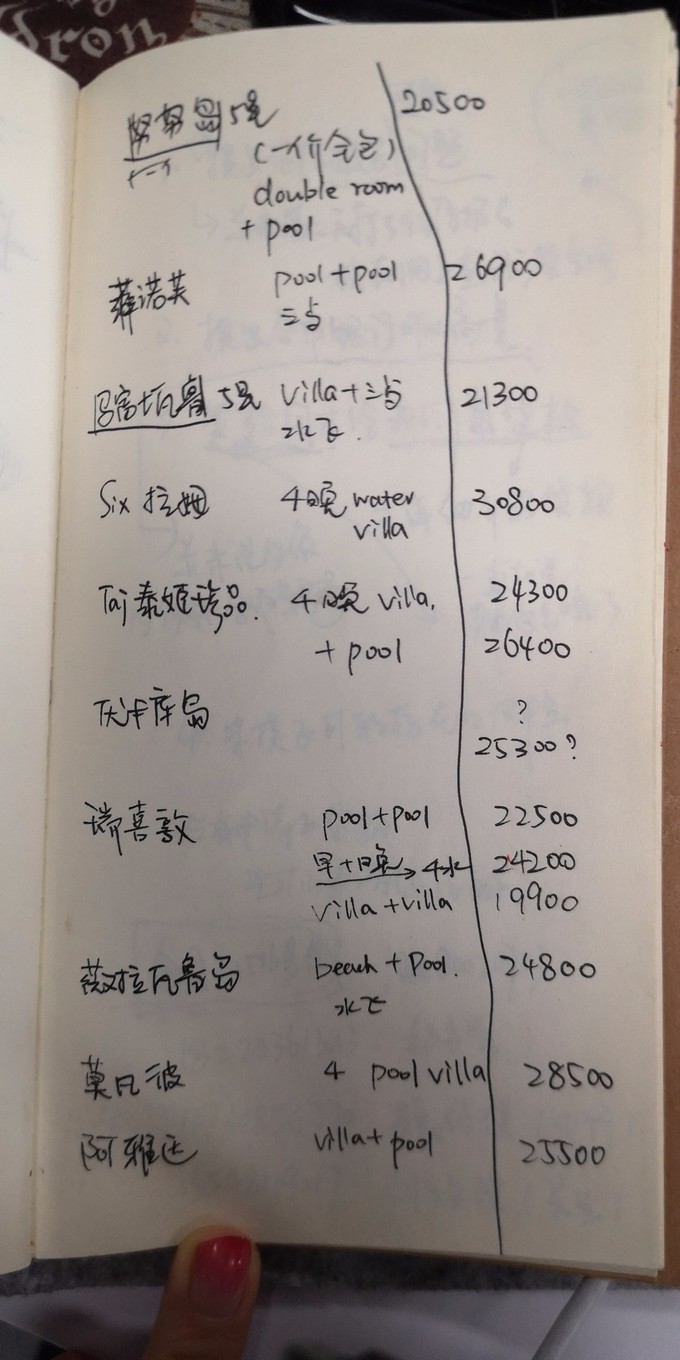 dron
努努岛 5星 20500
(一价全包)
double room
+ pool
菲诺芙 pool+pool 26900
三与
瓦鲁 5星 villa+三与 21300
水飞.
Six 拉姆 4晚 water 30800
villa
Taj 泰姬珍品. 4晚 villa, 24300
+ pool 26400
伏卡库岛 ?
25300?
瑞喜敦 pool+pool 22500
早+晚→4水 24200
villa+villa 19900
薇拉瓦鲁岛 beach + Pool. 24800
水飞
莫凡彼 4 pool villa 28500
阿雅达 villa+pool 25500